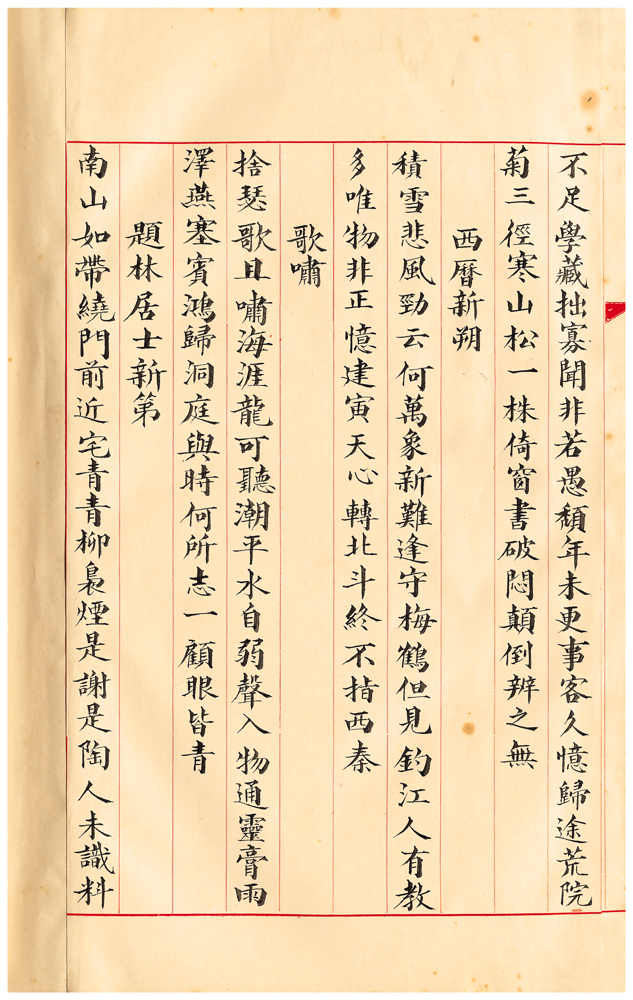 不足學藏拙寡聞非若愚頹年未更事客久憶歸途荒院
菊三徑寒山松一株倚窗書破悶顛倒辨之無
西曆新朔
積雪悲風勁云何萬象新難逢守梅鶴但見釣江人有教
多唯物非正憶建寅天心轉北斗終不指西秦
歌嘯
捨瑟歌且嘯海涯龍可聽潮平水自弱聲入物通靈膏雨
澤燕塞賓鴻歸洞庭與時何所志一顧眼皆青
題林居士新第
南山如帶繞門前近宅青青柳裊煙是謝是陶人未識料